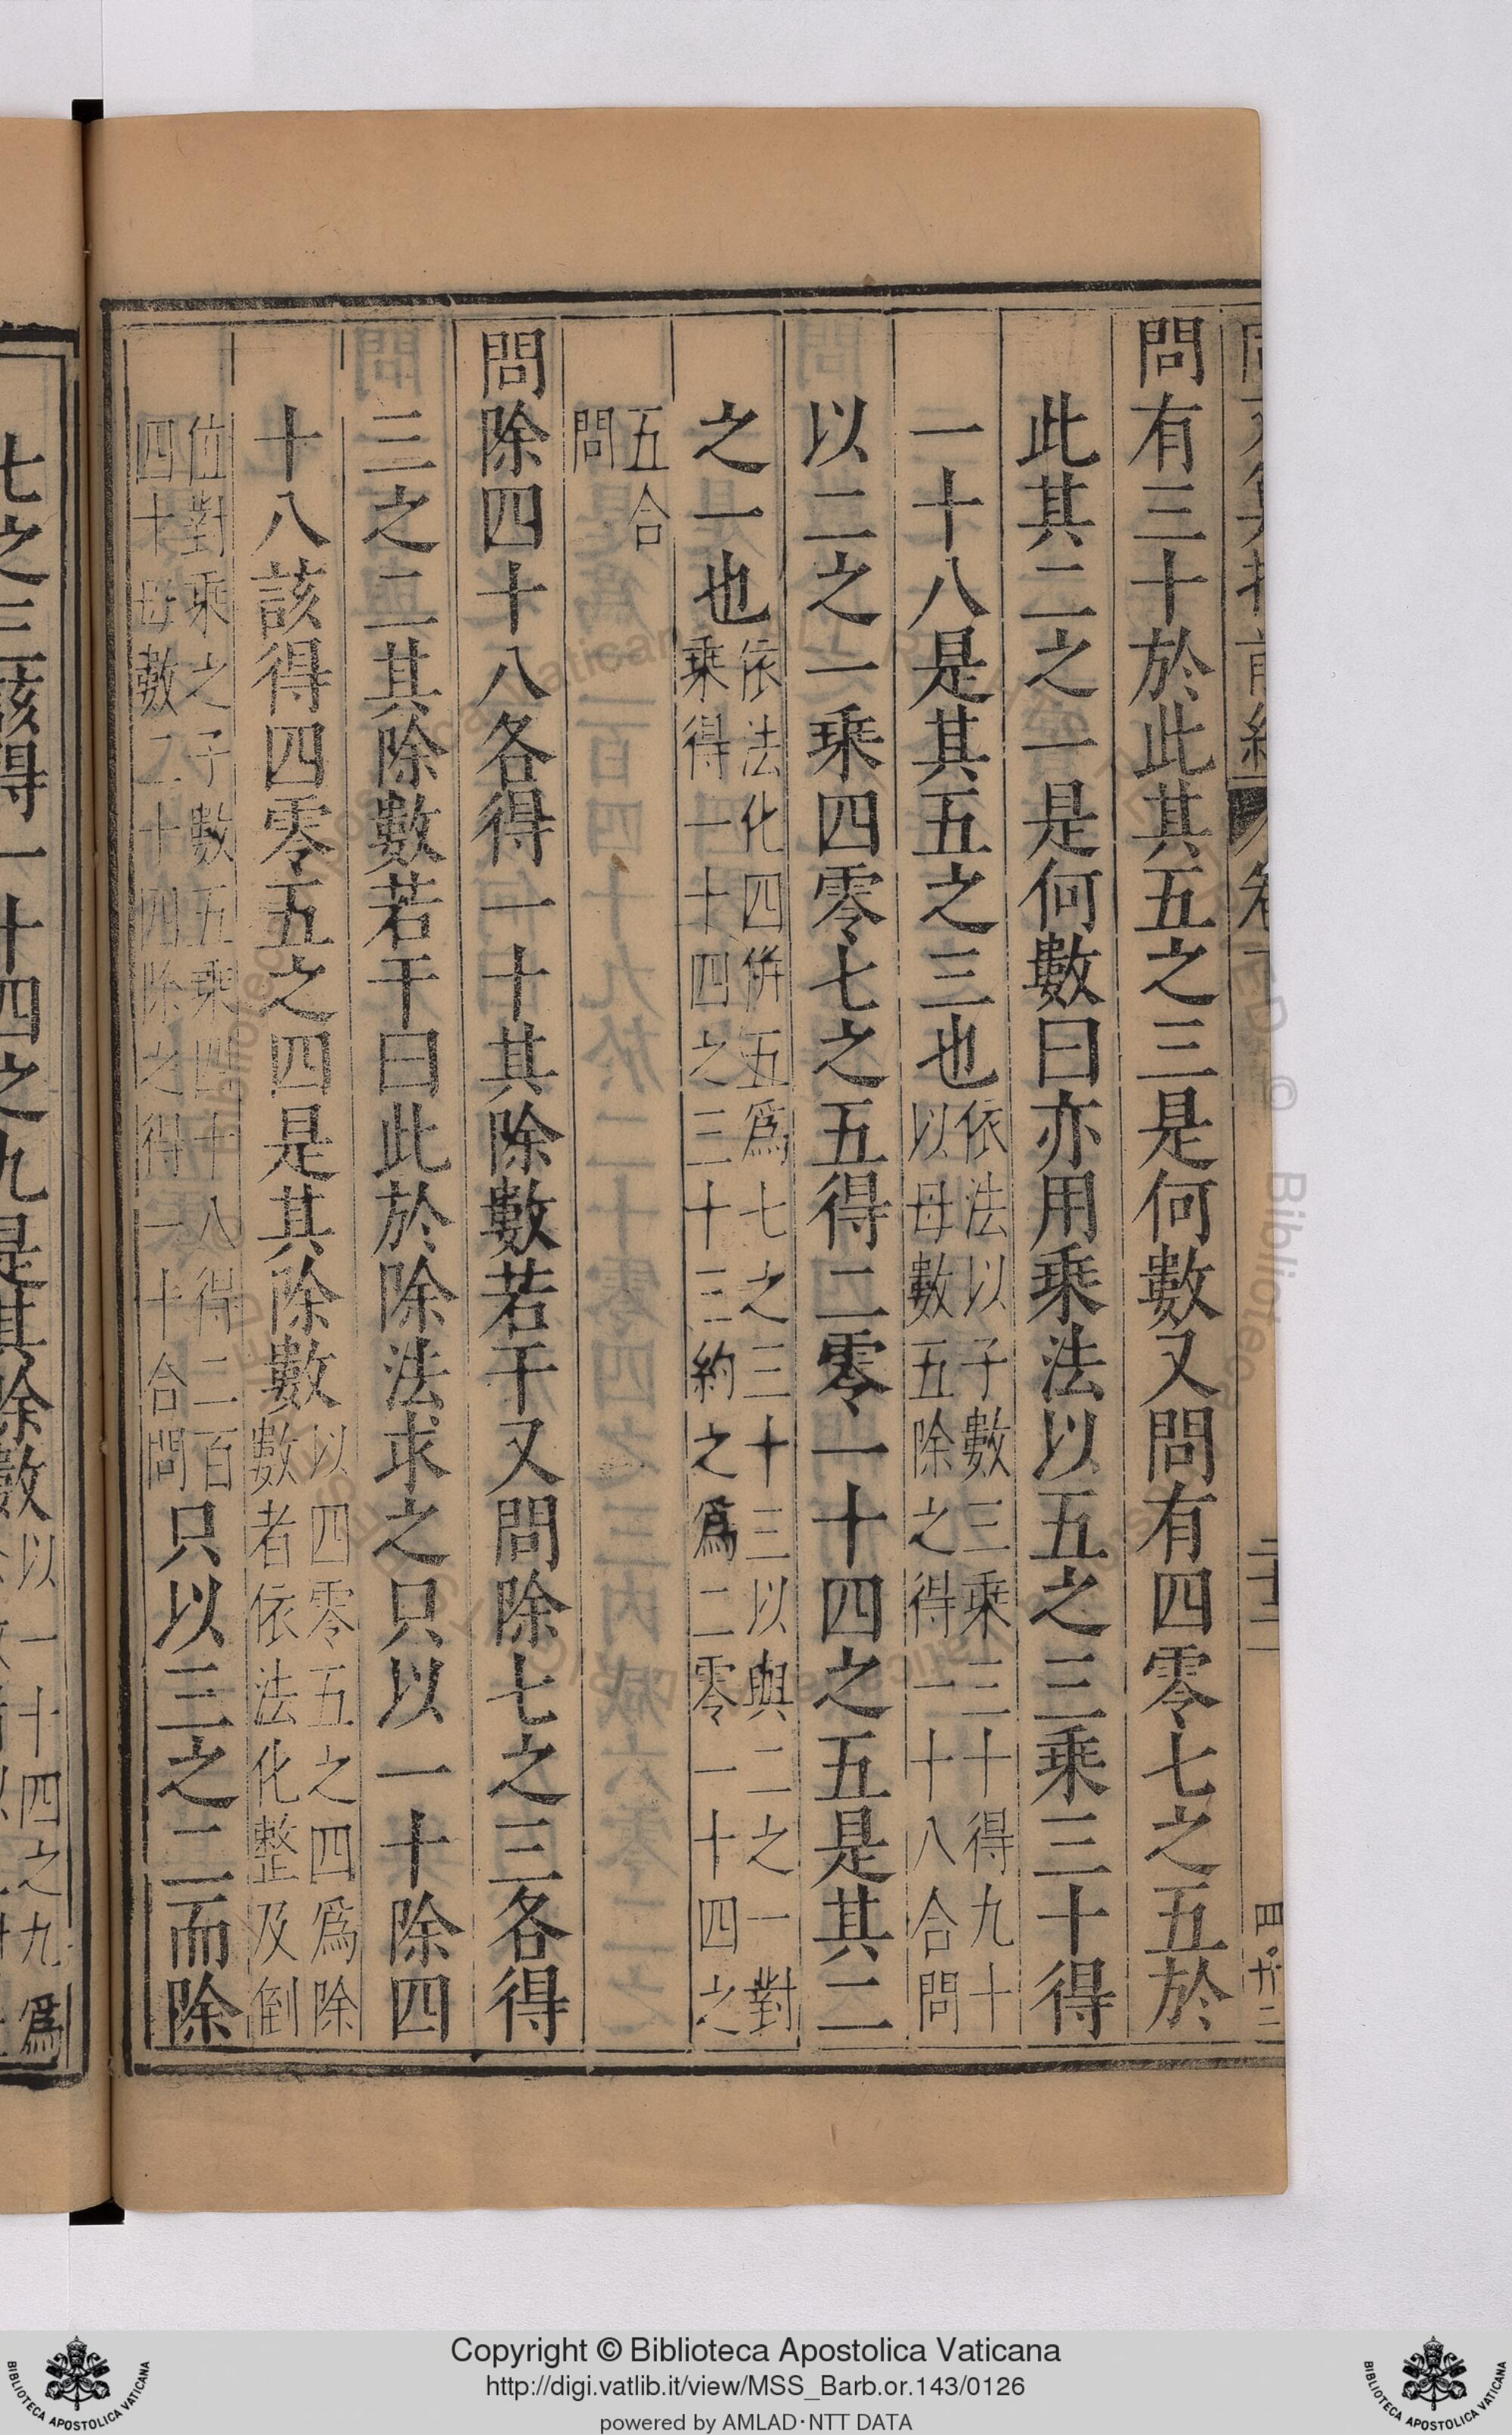 問有三十於此其五之三是何數又問有四零七之五於
此其二之一是何數曰亦用乘法以五之三乘三十得
一十八是其五之三也
依法以子數三乘三十得九十
以母數五除之得一十八合問
以二之一乘四零七之五得二零一十四之五是其二
之一也
依法化四併五爲七之三十三以與二之一對
乘得一十四之三十三約之爲二零一十四之
五合
問
問除四十八各得一十其除數若干又問除七之三各得
三之二其除數若干曰此於除法求之只以一十除四
十八該得四零五之四是其除數
以四零五之四爲除
數者依法化整及倒
位對乘之子數五乘四十八得二百
四十母數二十四除之得一十合問
只以三之二而除
七之三該得一十四之九是其除數
以一十四之九爲
Copyright © Biblioteca Apostolica Vaticana
http://digi.vatlib.it/view/MSS_Barb.or.143/0126
powered by AMLAD·NTT DATA
BIBLIOTECA APOSTOLICA VATICANA
BIBLIOTECA APOSTOLICA VATICANA